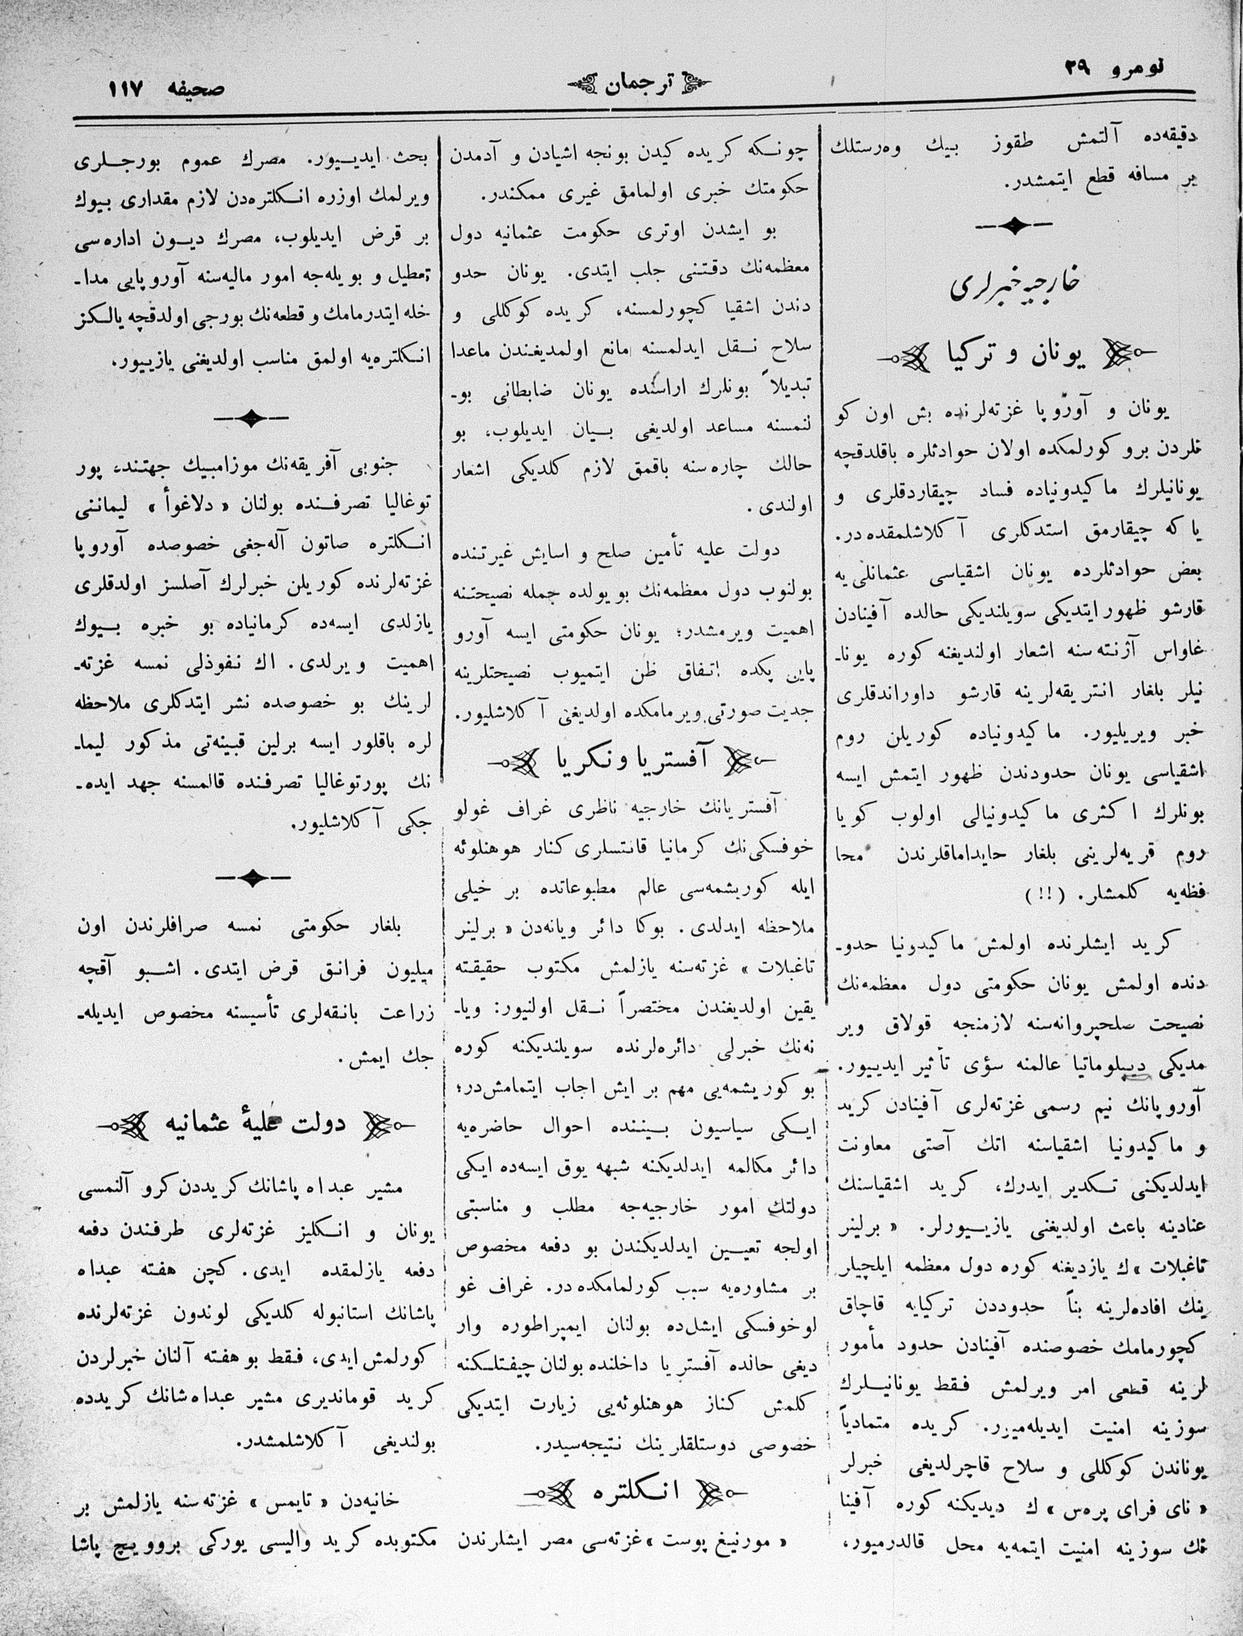 نومرو ٣٩
ترجمان
صحیفه ١١٧
دقیقه‌ده آلتمش طقوز بیك وه‌رستلك
بر مسافه قطع ایتمشدر.
خارجیه خبرلری
یونان و ترکیا
یونان و آوروپا غزته‌لرنده بش اون کو
نلردن برو کورلمکده اولان حوادثلره باقلدقچه
یونانیلرك ماکیدونیاده فساد چیقاردقلری و
یاکه چیقارمق استدکلری آکلاشلمقده‌در.
بعض حوادثلرده یونان اشقیاسی عثمانلی‌یه
قارشو ظهور ایتدیکی سویلندیکی حالده آفینادن
غاواس آژنته‌سنه اشعار اولندیغنه کوره یونا-
نیلر بلغار انتریقه‌لرینه قارشو داوراندقلری
خبر ویریلیور. ماکیدونیاده کوریلن روم
اشقیاسی یونان حدودندن ظهور ایتمش ایسه
بونلرك اکثری ماکیدونیالی اولوب کویا
روم قریه‌لرینی بلغار حایداماقلرندن محا
فظه‌یه کلمشلر. (!!)
کرید ایشلرنده اولمش ماکیدونیا حدو-
دنده اولمش یونان حکومتی دول معظمه‌نك
نصیحت صلحپروانه‌سنه لازمنجه قولاق ویر
مدیکی دیپلوماتیا عالمنه سؤی تأثیر ایدییور.
آوروپانك نیم رسمی غزته‌لری آفینادن کرید
و ماکیدونیا اشقیاسنه اتك آصتی معاونت
ایدلدیکنی تکدیر ایدرك، کرید اشقیاسنك
عنادینه باعث اولدیغنی یازییورلر. « برلینر
تاغبلات » ك یازدیغنه کوره دول معظمه ایلچیلر
ینك افاده‌لرینه بناً حدوددن ترکیایه قاچاق
کچورمامك خصوصنده آفینادن حدود مأمور
لرینه قطعی امر ویرلمش فقط یونانیلرك
سوزینه امنیت ایدیله‌میرر. کریده متمادیاً
یوناندن کوکللی و سلاح قاچرلدیغی خبرلر
« نای فرای پره‌س » ك دیدیکنه کوره آفینا
نك سوزینه امنیت ایتمه‌یه محل قالدرمیور،
چونکه کریده کیدن بونجه اشیادن و آدمدن
حکومتك خبری اولمامق غیری ممکندر.
بو ایشدن اوتری حکومت عثمانیه دول
معظمه‌نك دقتنی جلب ایتدی. یونان حدو
دندن اشقیا کچورلمسنه، کریده کوکللی و
سلاح نقل ایدلمسنه مانع اولمدیغندن ماعدا
تبدیلاً بونلرك اراسنده یونان ضابطانی بو-
لنمسنه مساعد اولدیغی بیان ایدیلوب، بو
حالك چاره‌سنه باقمق لازم کلدیکی اشعار
اولندی.
دولت علیه تأمین صلح و اسایش غیرتنده
بولنوب دول معظمه‌نك بو یولده جمله نصیحتنه
اهمیت ویرمشدر؛ یونان حکومتی ایسه آورو
پاین پکده اتفاق ظن ایتمیوب نصیحتلرینه
جدیت صورتی ویرمامکده اولدیغی آکلاشلیور.
آفستریا ونکریا
آفستریانك خارجیه ناظری غراف غولو
خوفسکی‌نك کرمانیا قانتسلری کناز هوهنلوئه
ایله کوریشمه‌سی عالم مطبوعاتده بر خیلی
ملاحظه ایدلدی. بوکا دائر ویانه‌دن « برلینر
تاغبلات » غزته‌سنه یازلمش مکتوب حقیقته
یقین اولدیغندن مختصراً نقل اولنیور: ویا-
نه‌نك خبرلی دائره‌لرنده سویلندیکنه کوره
بو کوریشمه‌یی مهم بر ایش اجاب ایتمامش‌در؛
ایکی سیاسیون بیننده احوال حاضره‌یه
دائر مکالمه ایدلدیکنه شبهه یوق ایسه‌ده ایکی
دولتك امور خارجیه‌جه مطلب و مناسبتی
اولجه تعیین ایدلدیکندن بو دفعه مخصوص
بر مشاوره‌یه سبب کورلمامکده‌در. غراف غو
لوخوفسکی ایشلده بولنان ایمپراطوره وار
دیغی حالده آفستریا داخلنده بولنان چیفتلکنه
کلمش کناز هوهنلوئه‌یی زیارت ایتدیکی
خصوصی دوستلقلرینك نتیجه‌سیدر.
انکلتره
« مورنیغ پوست » غزته‌سی مصر ایشلرندن
بحث ایدییور. مصرك عموم بورجلری
ویرلمك اوزره انکلتره‌دن لازم مقداری بیوك
بر قرض ایدیلوب، مصرك دیون اداره‌سی
تعطیل و بویله‌جه امور مالیه‌سنه آوروپایی مدا-
خله ایتدرمامك و قطعه‌نك بورجی اولدقچه یالکز
انکلتره‌یه اولمق مناسب اولدیغنی یازییور.
جنوبی آفریقه‌نك موزامبیك جهتند، پور
توغالیا تصرفنده بولنان « دلاغوأ » لیماننی
انکلتره صاتون آله‌جغی خصوصده آوروپا
غزته‌لرنده کوریلن خبرلرك آصلسز اولدقلری
یازلدی ایسه‌ده کرمانیاده بو خبره بیوك
اهمیت ویرلدی. اك نفوذلی نمسه غزته-
لرینك بو خصوصده نشر ایتدکلری ملاحظه
لره باقلور ایسه برلین قبینه‌تی مذکور لیما-
نك پورتوغالیا تصرفنده قالمسنه جهد ایده-
جکی آکلاشلیور.
بلغار حکومتی نمسه صرافلرندن اون
میلیون فرانق قرض ایتدی. اشبو آقچه
زراعت بانقه‌لری تأسیسنه مخصوص ایدیله-
جك ایمش.
دولت علیۀ عثمانیه
مشیر عبداه پاشانك کریددن کرو آلنمسی
یونان و انکلیز غزته‌لری طرفندن دفعه
دفعه یازلمقده ایدی. کچن هفته عبداه
پاشانك استانبوله کلدیکی لوندون غزته‌لرنده
کورلمش ایدی، فقط بو هفته آلنان خبرلردن
کرید قوماندیری مشیر عبداه‌شانك کریدده
بولندیغی آکلاشلمشدر.
خانیه‌دن « تایمس » غزته‌سنه یازلمش بر
مکتوبده کرید والیسی یورکی بروویچ پاشا